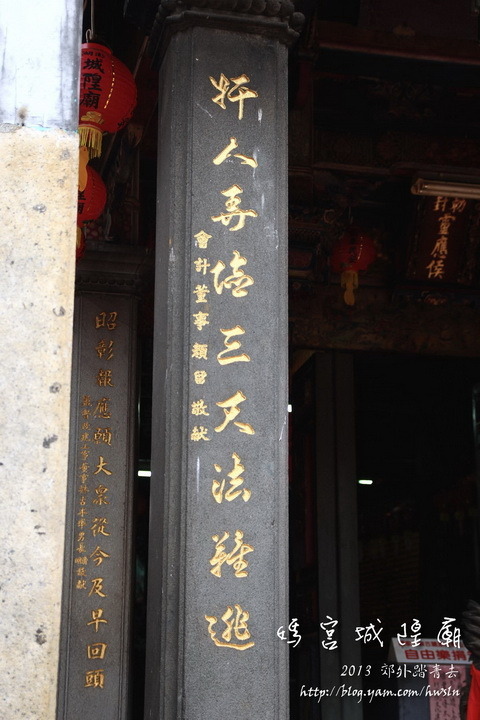 城隍廟
奸人弄恊三尺法難逃
會計董事 顏曾 敬献
昭彰報應願大眾從今及早回頭
勅封靈應侯
媽宮城隍廟
自由樂捐
2013 郊外踏青去
http://blog.yam.com/hwsln